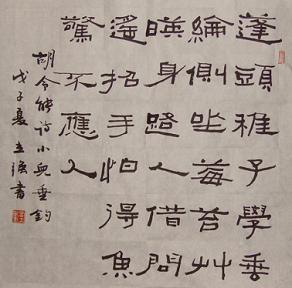 蓬頭稚子學垂
綸側坐莓苔艸
暎身路人借問
遙招手怕得魚
驚不應人
胡令能詩小兒垂釣
戊子夏立強書